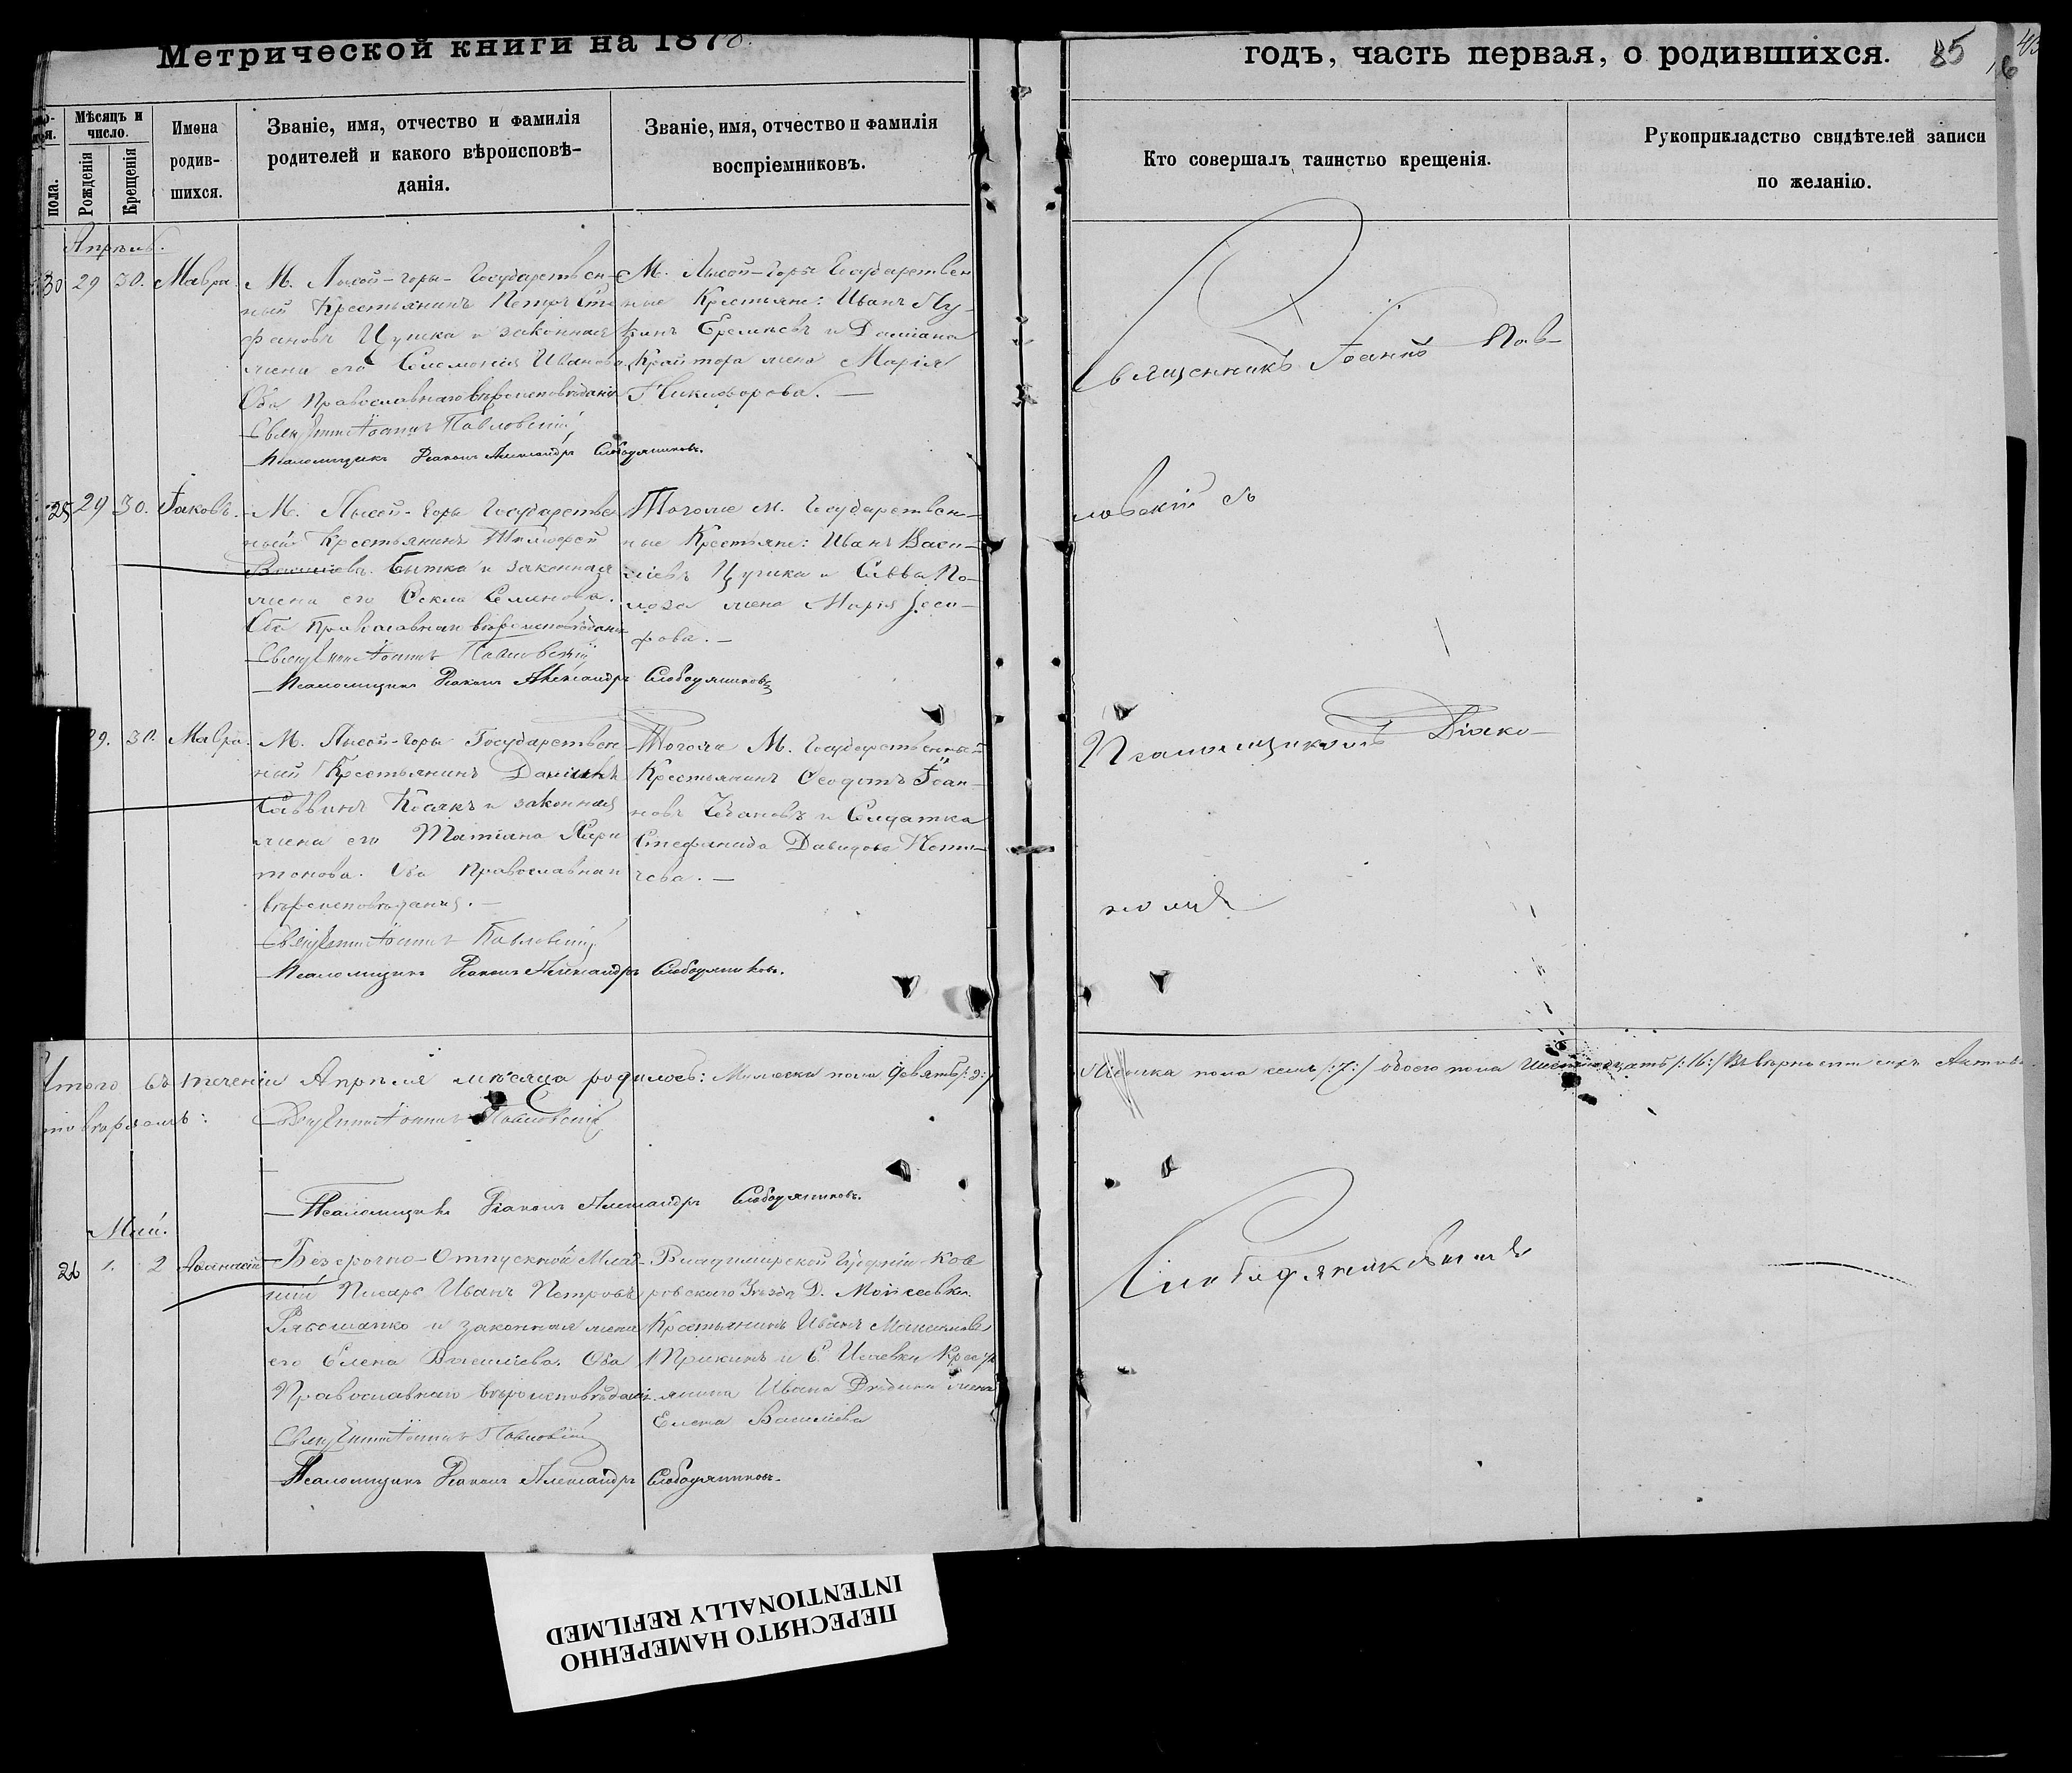 Метрической книги на 1878.
годъ, часть первая, о родившихся.
85
Мѣсяцъ и число.
пола.
Рожденія
Крещенія
Имена родив-шихся.
Званіе, имя, отчество и фамилія
родителей и какого вѣроисповѣ-
данія.
Званіе, имя, отчество и фамилія
воспріемниковъ.
Кто совершалъ таинство крещенія.
Рукоприкладство свидѣтелей записи
по желанію.
Апрель.
30 29 30. Мавра.
М. Лысой-горы Государствен-
ный Крестьянинъ Петръ Сте
фановъ Цушка и законная
жена его Соломонія Иванова
Оба Православнаго вѣроисповѣданія
Священникъ Іоаннъ Павловскій
Псаломщикъ Діаконъ Александръ Слободяниковъ.
М. Лысой-горы Государствен
ные Крестьяне: Иванъ
Еремѣевъ и Даміана
жена Марія
Никифорова.
25 29 30. Іаковъ.
М. Лысой-горы Государстве
нный Крестьянинъ Тимофей
Василіевъ Бытка и законная
жена его Ѳекла Семенова.
Оба Православнаго вѣроисповѣданія
Священникъ Іоаннъ Павловскій
Псаломщикъ Діаконъ Александръ Слободяниковъ
Тогоже М. Государствен-
ные Крестьяне: Иванъ Васи-
ліевъ Цушка и Саввы По-
лоза жена Марія
рова.
29. 30. Мавра.
М. Лысой-горы Государствен
ный Крестьянинъ Даніилъ
Саввинъ Косякъ и законная
жена его Татіана Хари
тонова. Оба Православнаго
вѣроисповѣданія.
Священникъ Іоаннъ Павловскій
Псаломщикъ Діаконъ Александръ Слободяниковъ.
Тогоже М. Государственный
Крестьянинъ Ѳеодотъ Іоан-
новъ Чебановъ и Солдатка
Стефанида Давидова
чева.
Итого въ теченіи Апрѣля мѣсяца родилось: Мужеска пола девять /:9:/
Женска пола семь /:7:/ обоего пола шестнадцать /:16:/ Въ вѣрности сихъ Актовъ
Священникъ Іоаннъ Павловскій
Псаломщикъ Діаконъ Александръ Слободяниковъ.
Май.
26 1. 2 Аѳанасій
Безсрочно-Отпускной Млад-
шій Писарь Иванъ Петровъ
Рябошапко и законная жена
его Елена Василіева. Оба
Православнаго вѣроисповѣданія
Священникъ Іоаннъ Павловскій
Псаломщикъ Діаконъ Александръ Слободяниковъ.
Владимірской Губерніи Ков
ровскаго Уѣзда Д. Мойсеевки
Крестьянинъ Иванъ
и С. Крестья
янина Ивана жена
Елена Василіева
Священникъ Іоаннъ Пав-
ловскій съ
Псаломщикомъ Діако-
номъ
Слободяниковымъ
ПЕРЕСНЯТО НАМЕРЕННО
INTENTIONALLY REFILMED